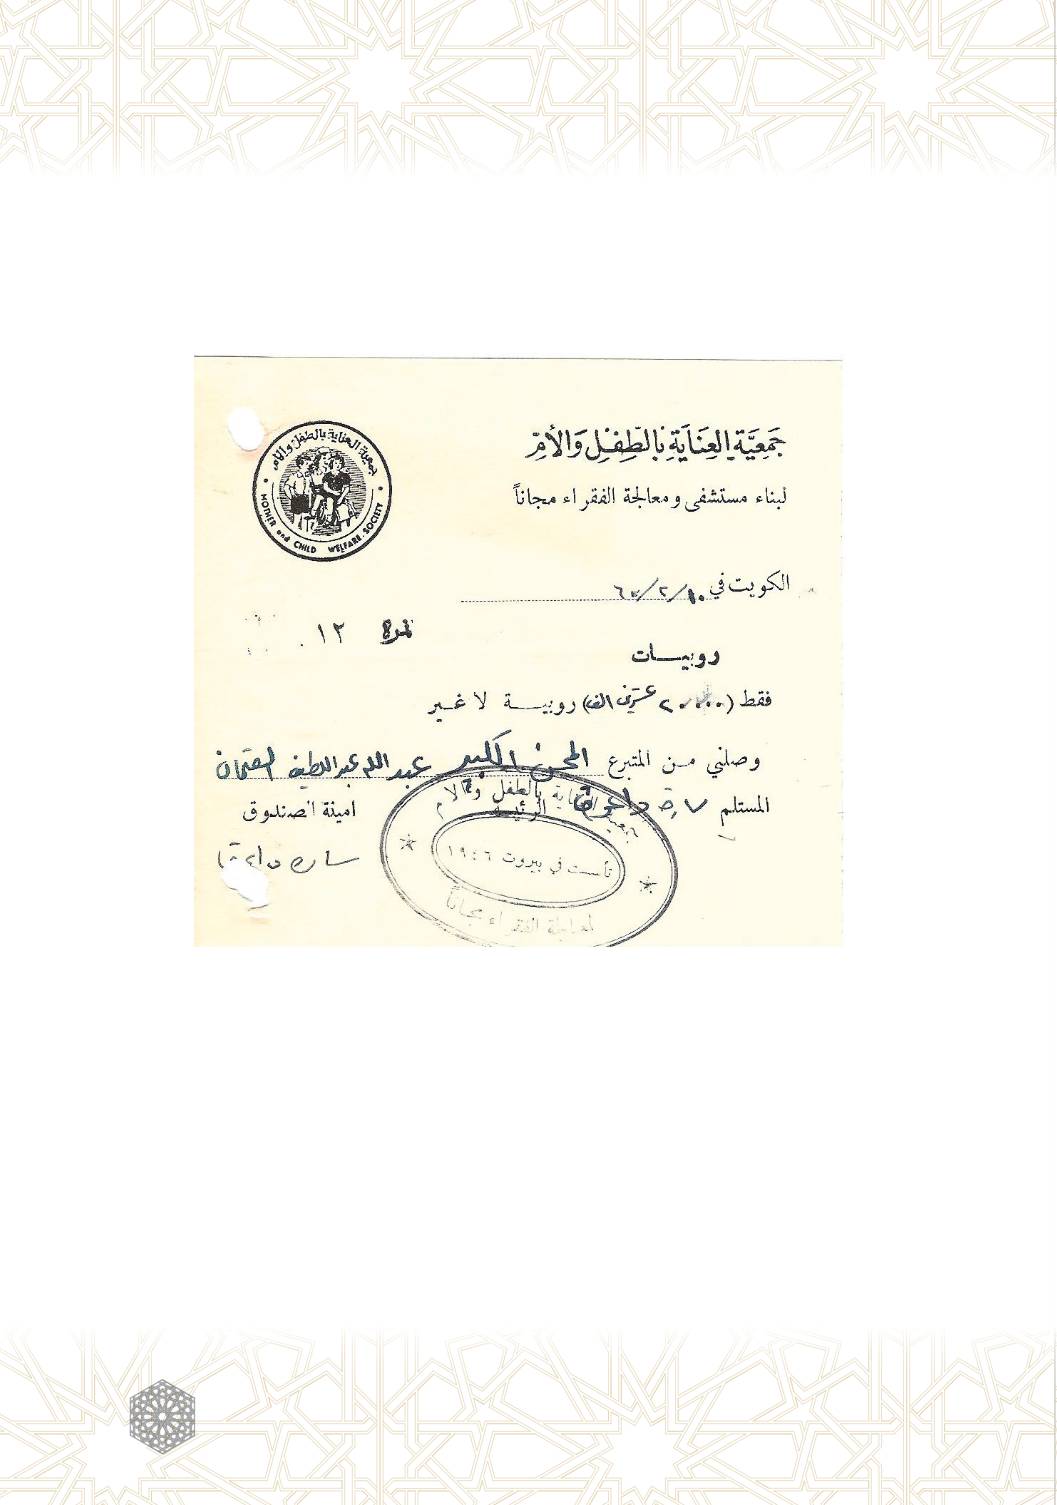 جَمْعِيَّة العِنَايَةِ بالطِّفْلِ وَالأمّ
لبناء مستشفى ومعالجة الفقراء مجاناً
جمعية العناية بالطفل والام
MOTHER and CHILD WELFARE SOCIETY
الكويت في ١٠/٢/٦٠
نمرة ١٢
روبيات
فقط (٢٠٠٠٠ عشرين الف) روبية لا غير
وصلني من المتبرع المحسن الكبير عبد الله عبد اللطيف العثمان
المستلم الرئيسة امينة الصندوق
جمعية العناية بالطفل والام
تأسست في بيروت ١٩٤٦
لمعالجة الفقراء مجاناً